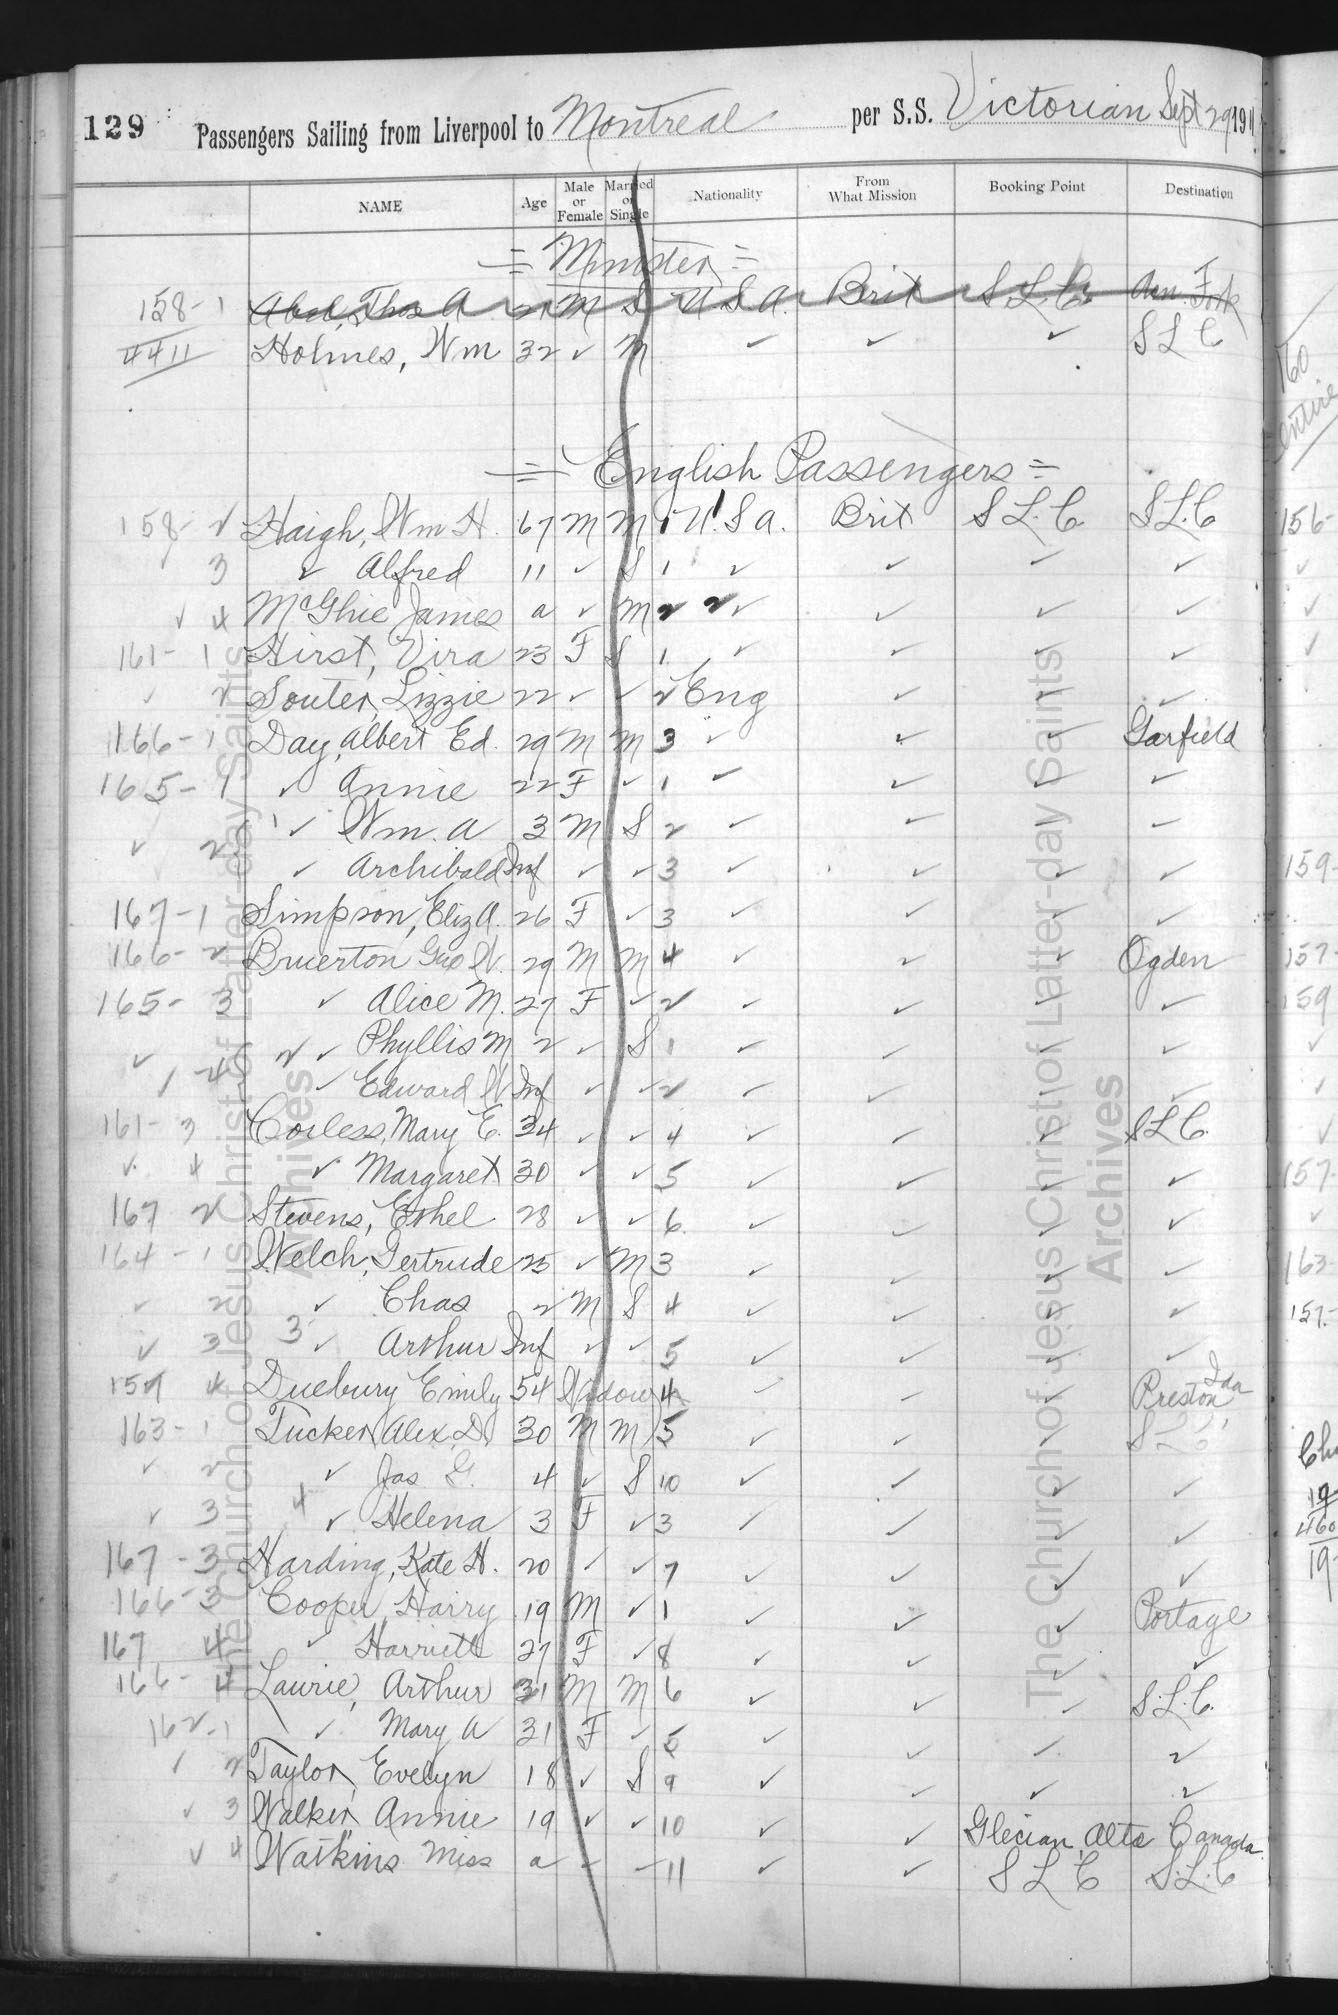 129 Passengers Sailing from Liverpool to Montreal per S.S. Victorian Sept 29 1911
NAME Age Male or Female Married or Single Nationality From What Mission Booking Point Destination
= Minister =
158-1 Abel, Thos A 21 M S U.S.A. Brit S.L.C. Am. Fork
4411 Holmes, Wm 32 ✓ M ✓ ✓ ✓ S L C
= English Passengers =
158- 2 Haigh, Wm H. 67 M M 1 U.S.A. Brit S.L.C. S.L.C
✓ 3 ✓ Alfred 11 ✓ S 1 ✓ ✓ ✓ ✓
✓ 4 McGhie James a ✓ M 2 2 ✓ ✓ ✓ ✓
161- 1 Hirst, Vira 23 F S 1 ✓ ✓ ✓ ✓
✓ 2 Souter, Lizzie 22 ✓ ✓ 2 Eng ✓ ✓ ✓
166- 1 Day, Albert Ed. 29 M M 3 ✓ ✓ ✓ Garfield
165- 1 ✓ Annie 22 F ✓ 1 ✓ ✓ ✓ ✓
✓ 2 1 ✓ Wm. A 3 M S 2 ✓ ✓ ✓ ✓
✓ Archibald Inf ✓ ✓ 3 ✓ ✓ ✓ ✓
167-1 Simpson, Eliz A. 26 F ✓ 3 ✓ ✓ ✓ ✓
166- 2 Bruerton Geo W. 29 M M 4 ✓ ✓ ✓ Ogden
165- 3 ✓ Alice M. 27 F ✓ 2 ✓ ✓ ✓ ✓
✓ 4 2 ✓ Phyllis M 2 ✓ S 1 ✓ ✓ ✓ ✓
✓ Edward W. Inf ✓ ✓ 2 ✓ ✓ ✓ ✓
161- 3 Corless, Mary E. 34 ✓ ✓ 4 ✓ ✓ ✓ S L C.
✓ 4 ✓ Margaret 30 ✓ ✓ 5 ✓ ✓ ✓ ✓
167 2 Stevens, Ethel 28 ✓ ✓ 6 ✓ ✓ ✓ ✓
164- 1 Welch, Gertrude 25 ✓ M 3 ✓ ✓ ✓ ✓
✓ 2 ✓ Chas 2 M S 4 ✓ ✓ ✓ ✓
✓ 3 3 ✓ Arthur Inf ✓ ✓ 5 ✓ ✓ ✓ ✓
157 4 Duebury Emily 54 Widow 4 ✓ ✓ ✓ Preston Ida
163- 1 Tucker, Alex. D. 30 M M 5 ✓ ✓ ✓ S L C
✓ 2 ✓ Jas G. 4 ✓ S 10 ✓ ✓ ✓ ✓
✓ 3 4 ✓ Helena 3 F ✓ 3 ✓ ✓ ✓ ✓
167 - 3 Harding, Kate H. 20 ✓ ✓ 7 ✓ ✓ ✓ ✓
166- 3 Cooper, Harry 19 M ✓ 1 ✓ ✓ ✓ Portage
167 4 ✓ Harriett 27 F ✓ 8 ✓ ✓ ✓ ✓
166- 4 Laurie, Arthur 31 M M 6 ✓ ✓ ✓ S.L.C.
162-1 ✓ Mary A 31 F ✓ 5 ✓ ✓ ✓ ✓
✓ 2 Taylor, Evelyn 18 ✓ S 9 ✓ ✓ ✓ ✓
✓ 3 Walker, Annie 19 ✓ ✓ 10 ✓ ✓ Glecian, Alta Canada.
✓ 4 Watkins Miss a ✓ ✓ 11 ✓ ✓ S L C S.L.C
The Church of Jesus Christ of Latter-day Saints
Archives
The Church of Jesus Christ of Latter-day Saints
Archives
160
entire
156-
159-
157-
159
157
163
157-